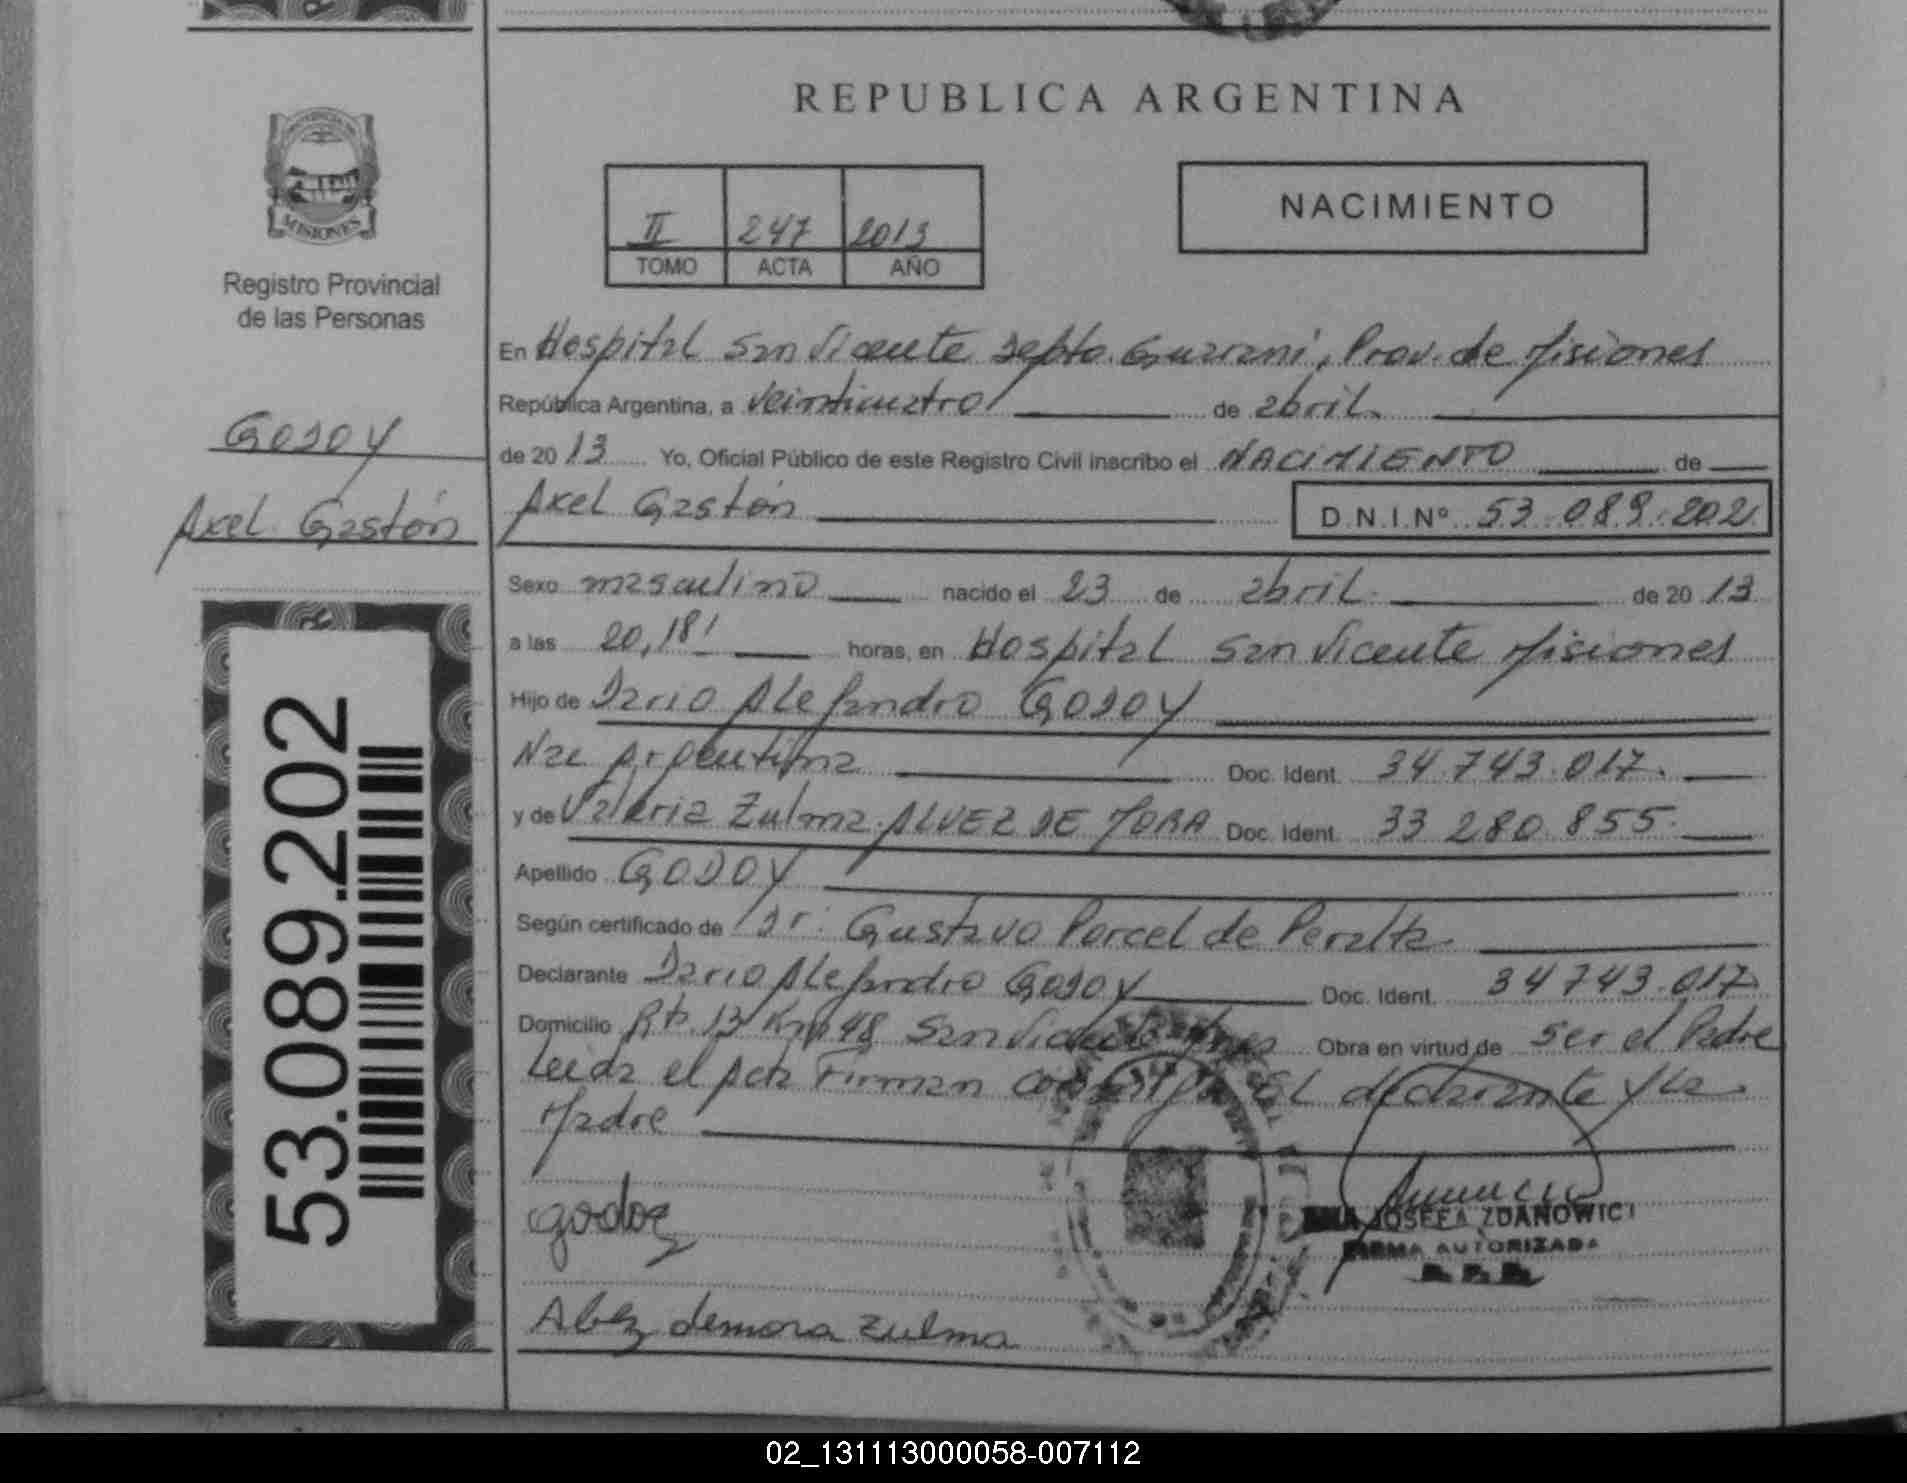 REPUBLICA ARGENTINA
MISIONES
Registro Provincial
de las Personas
II 247 2013
TOMO ACTA AÑO
NACIMIENTO
GODOY
Axel Gastón
53.089.202
En Hospital San Vicente Depto. Guaraní, Prov. de Misiones
República Argentina, a veinticuatro de abril
de 2013 Yo, Oficial Público de este Registro Civil inscribo el NACIMIENTO de
Axel Gastón D.N.I.Nº 53.089.202
Sexo masculino nacido el 23 de abril de 2013
a las 20,18' horas, en Hospital San Vicente Misiones
Hijo de Dario Alejandro GODOY
Nac Argentina Doc. Ident. 34.743.017
y de Valeria Zulma ALVEZ DE MORA Doc. Ident. 33 280.855
Apellido GODOY
Según certificado de Dr. Gustavo Porcel de Peralta
Declarante Dario Alejandro GODOY Doc. Ident. 34743.017
Domicilio Rta 13 Km 48 San Vicente Mnes Obra en virtud de ser el Padre
Leida el Acta Firman conmigo El declarante y la
Madre
godoy
JOSEFA ZDANOWICZ
FIRMA AUTORIZADA
Albez demora Zulma
02_131113000058-007112